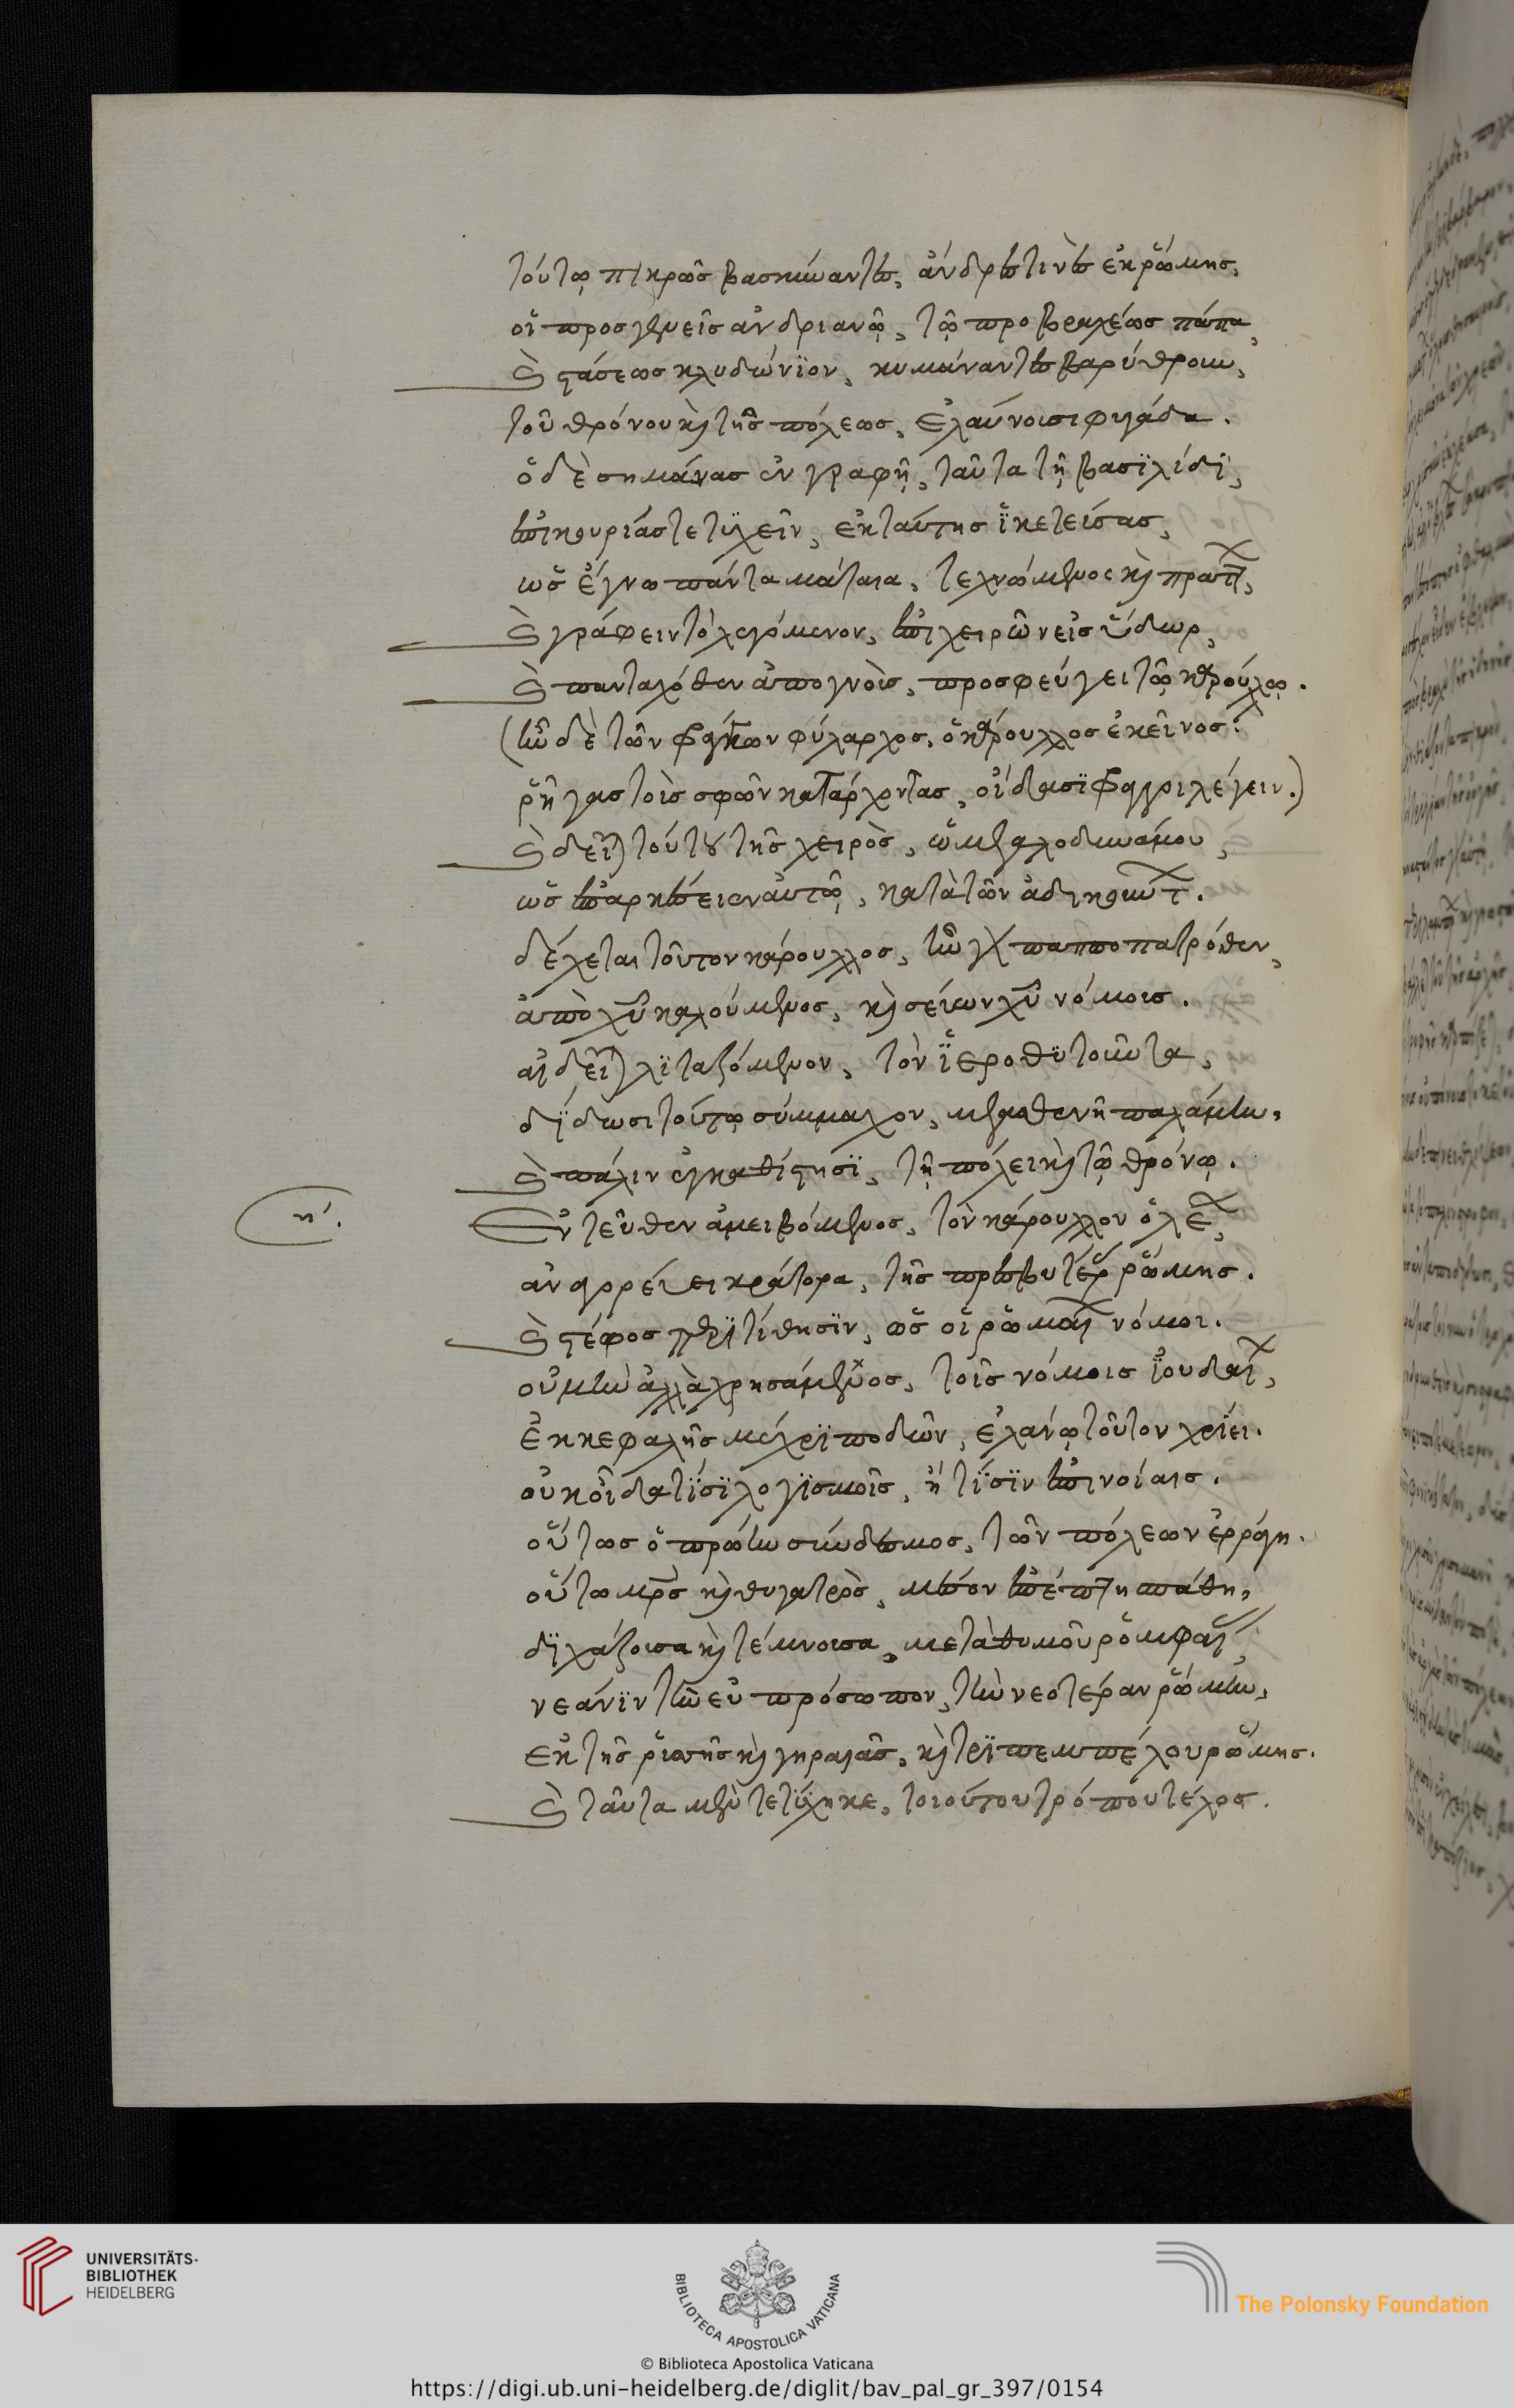 τούτῳ πικρῶς βασκήναντες, ἄνδρες τινὲς ἐκ ῥώμης,
οἱ προσγενεῖς ἀνδριανῷ, τῷ προ βραχέως πάπα,
Καὶ στάσεως κλυδώνϊον, κυμάναντες βαρύθρουν,
τοῦ θρόνου καὶ τῆς πόλεως, ἐλαύνουσι φυγάδα.
ὁ δὲ σημάνας ἐν γραφῇ, ταῦτα τῇ βασϊλίδϊ,
ἐπικουρίας τε τϋχεῖν, ἐκ ταύτης ἱκετεύσας,
ὡς ἔγνω πάντα μάταια, τεχνώμενος καὶ πράττων,
Καὶ γράφειν τὸ λεγόμενον, ἐπιχειρῶν εἰς ὕδωρ,
Καὶ πανταχόθεν ἀπογνοὺς, προσφεύγει τῷ καρούλῳ.
(ἦν δὲ τῶν φράγκων φύλαρχος, ὁ κάρουλλος ἐκεῖνος:
ῥῆγας τοὺς σφῶν κατάρχοντας, οἴδασϊ φράγγοι λέγειν.)
Καὶ δεῖται τούτου τῆς χειρὸς, ὡς μεγαλοδυνάμου,
ὡς ἐπαρκέσειεν αὐτῷ, κατὰ τῶν ἀδικούντων.
δέχεται τοῦτον κάρουλλος, ἦν γὰρ παπποπατρόθεν,
ἀπὸ χῡ καλούμενος, καὶ σέβων χῡ νόμοις.
αἰδεῖται λϊταζόμενον, τὸν ϊεροθϋτοῦντα,
δίδωσι τούτῳ σύμμαχον, μεγασθενῆ παλάμην,
Καὶ πάλιν ἐγκαθίστησϊ, τῇ πόλει καὶ τῷ θρόνῳ.
η΄. Ἐντεῦθεν ἀμειβόμενος, τὸν κάρουλλον ὁ λέων,
ἀναγορεύει κράτορα, τῆς πρεσβυτέρας ῥώμης.
Καὶ στέφος περϊτίθησϊν, ὡς οἱ ῥωμαίων νόμοι.
οὐ μὴν ἀλλὰ χρησάμενος, τοῖς νόμοις ἰουδαίων,
ἐκ κεφαλῆς μέχρϊ ποδῶν, ἐλαίῳ τοῦτον χρίει.
οὐκ οἶδα τίσϊ λογϊσμοῖς, ἢ τίσϊν ἐπινοίαις.
οὕτως ὁ πρώην σύνδεσμος, τῶν πόλεων ἐρράγη.
οὕτω μρ̅ς καὶ θυγατρὸς, μέσον ἐπέπτη σπάθη,
δϊχάζουσα καὶ τέμνουσα, μετὰ θυμοῦ ῥομφαίας
νεάνϊν τὴν εὐπρόσωπον, τὴν νεοτέραν ῥώμην,
ἐκ τῆς ῥυσῆς καὶ γηραιᾶς, καὶ τρϊπεμπέλου ῥώμης.
Καὶ ταῦτα μὲν τετύχηκε, τοιούτου τρόπου τέλος.
UNIVERSITÄTS-
BIBLIOTHEK
HEIDELBERG
BIBLIOTECA APOSTOLICA VATICANA
The Polonsky Foundation
© Biblioteca Apostolica Vaticana
https://digi.ub.uni-heidelberg.de/diglit/bav_pal_gr_397/0154